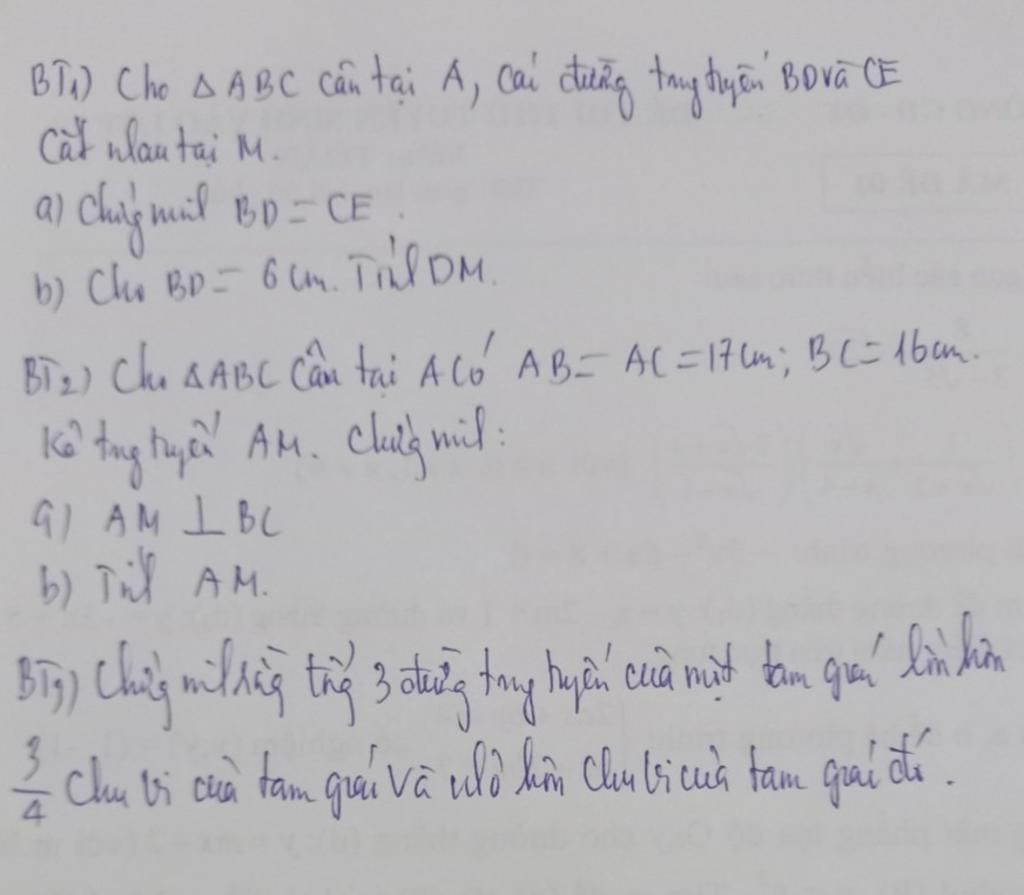 BT1) Cho △ABC cân tại A, các đường trung tuyến BD và CE
cắt nhau tại M.
a) Chứng minh BD = CE.
b) Cho BD = 6cm. Tính DM.
BT2) Cho △ABC cân tại A có AB = AC = 17cm; BC = 16cm.
Kẻ trung tuyến AM. Chứng minh:
a) AM ⊥ BC
b) Tính AM.
BT3) Chứng minh rằng tổng 3 đường trung tuyến của một tam giác lớn hơn
3/4 chu vi của tam giác và nhỏ hơn chu vi của tam giác đó.